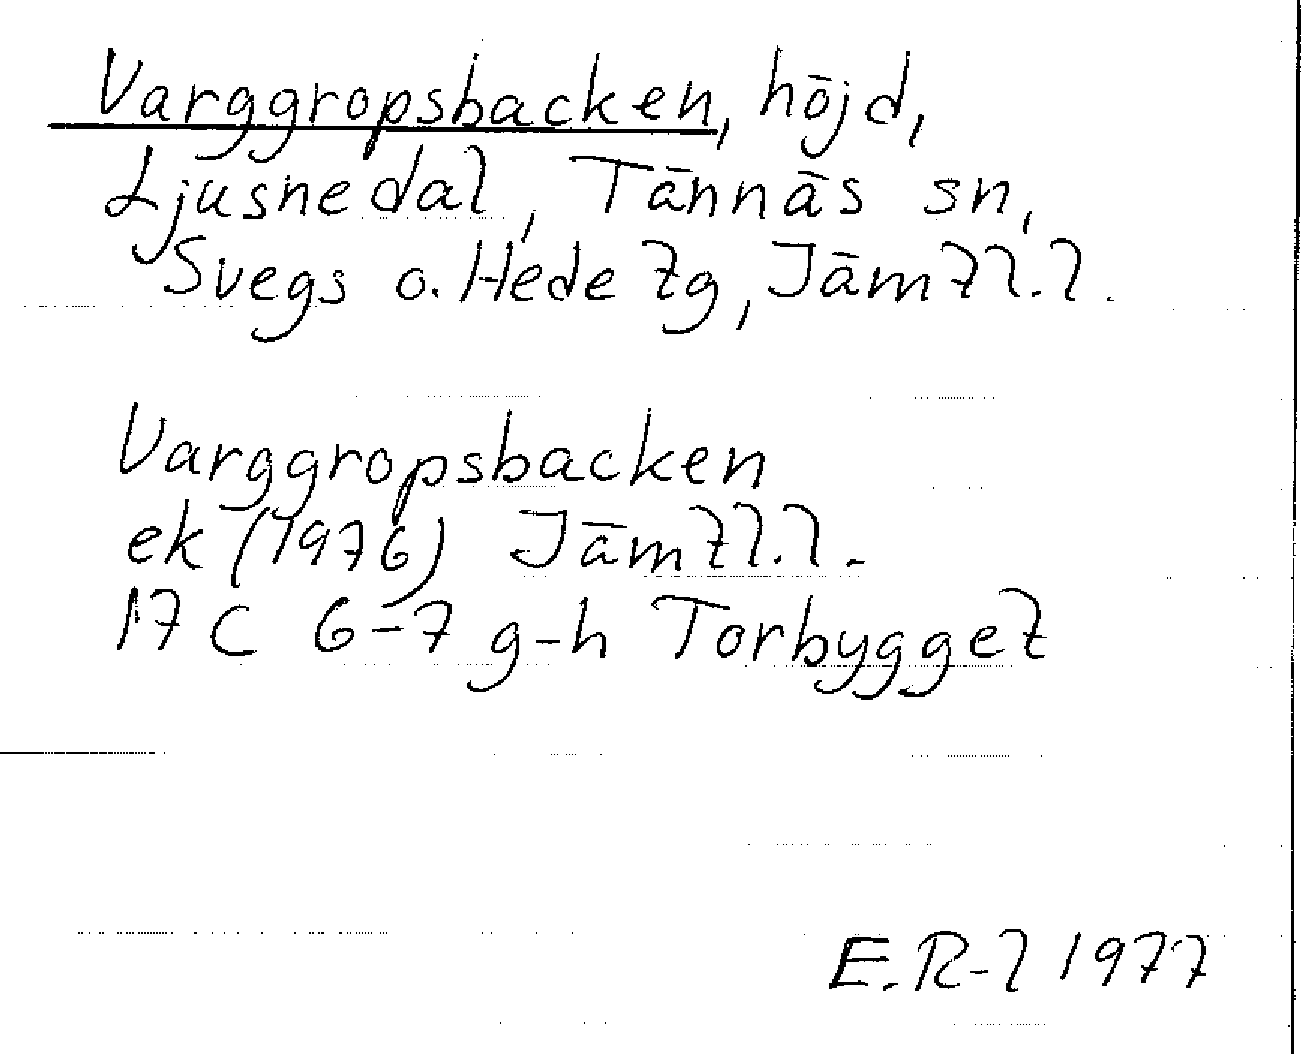 Varggropsbacken, höjd,
Ljusnedal, Tännäs sn,
Svegs o. Hede tg, Jämtl. l.
Varggropsbacken
ek (1976) Jämtl. l.
17 C 6-7 g-h Torbygget
E. R-l 1977